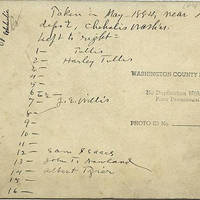 Taken in May 1884, near
depot, Chehalis Washn.
Left to right =
1 — Tullis
2 — Harley Tullis
3 —
4 —
5 —
6 —
7 — J. E. Willis
8 —
9 —
10 —
11 —
12 — Sam Isaacs
13 — John T. Newland
14 — Albert Tozier
15 —
16 —
WASHINGTON COUNTY
No Duplication With
PHOTO ID No.